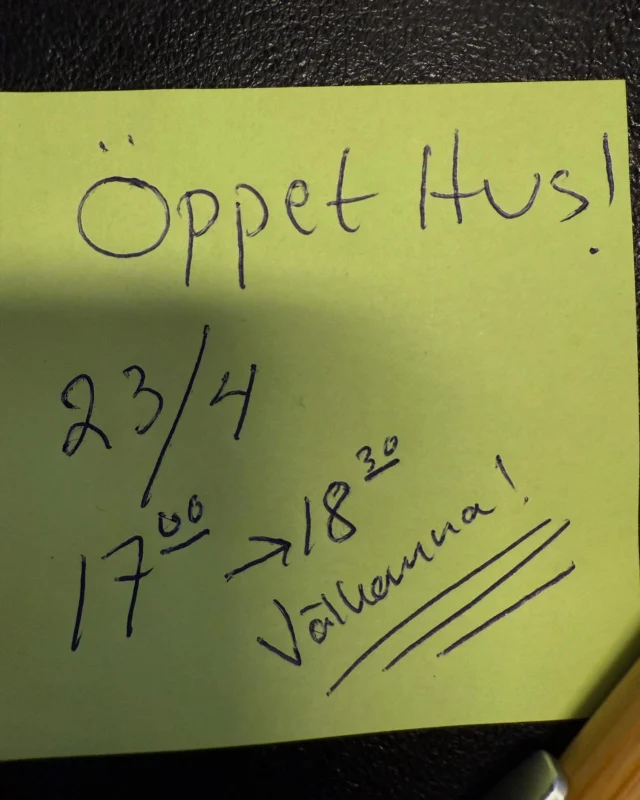 Öppet Hus!
23/4
17⁰⁰ → 18³⁰
Välkomna!